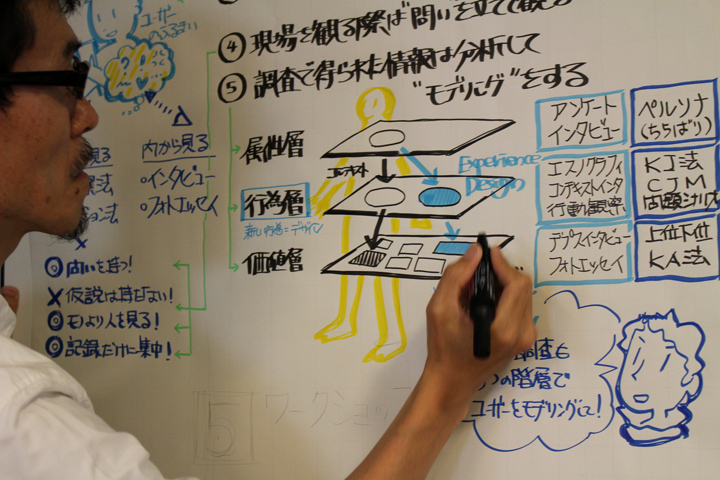 ④ 現場を観る際は"問い"を立てて観る
⑤ 調査で得られた情報は分析して
"モデリング"をする
ユーザー
内から見る
・インタビュー
・フォトエッセイ
見る
◎ 問いを持つ!
× 仮説は持たない!
◎ モノより人を見る!
◎ 記録だけに集中!
属性層
コンテキスト
行為層
新しい行為=デザイン
価値層
Experience
Design
アンケート
インタビュー
ペルソナ
エスノグラフィ
コンテキストインタ
行動観察
KJ法
CJM
デプスインタビュー
フォトエッセイ
上位下位
KA法
調査も
つの階層で
ユーザーをモデリングして!
5 ワークショップ